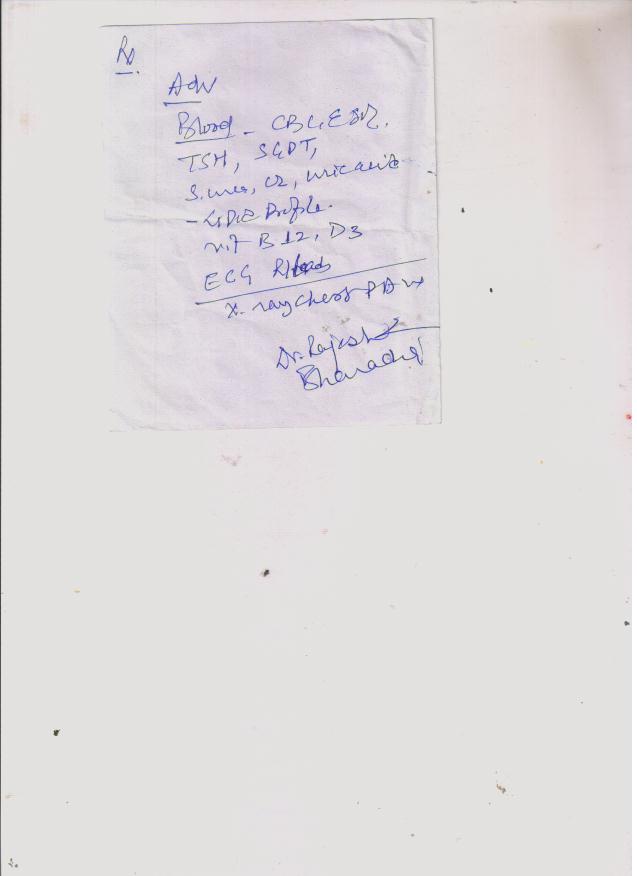 Rx
Adv
Blood - CBC, ESR,
TSH, SGPT,
S. urea, cr, uric acid
- Lipid Profile.
vit B 12, D3
ECG
X-ray Chest PA
Dr. Rajesh
Bharadwaj